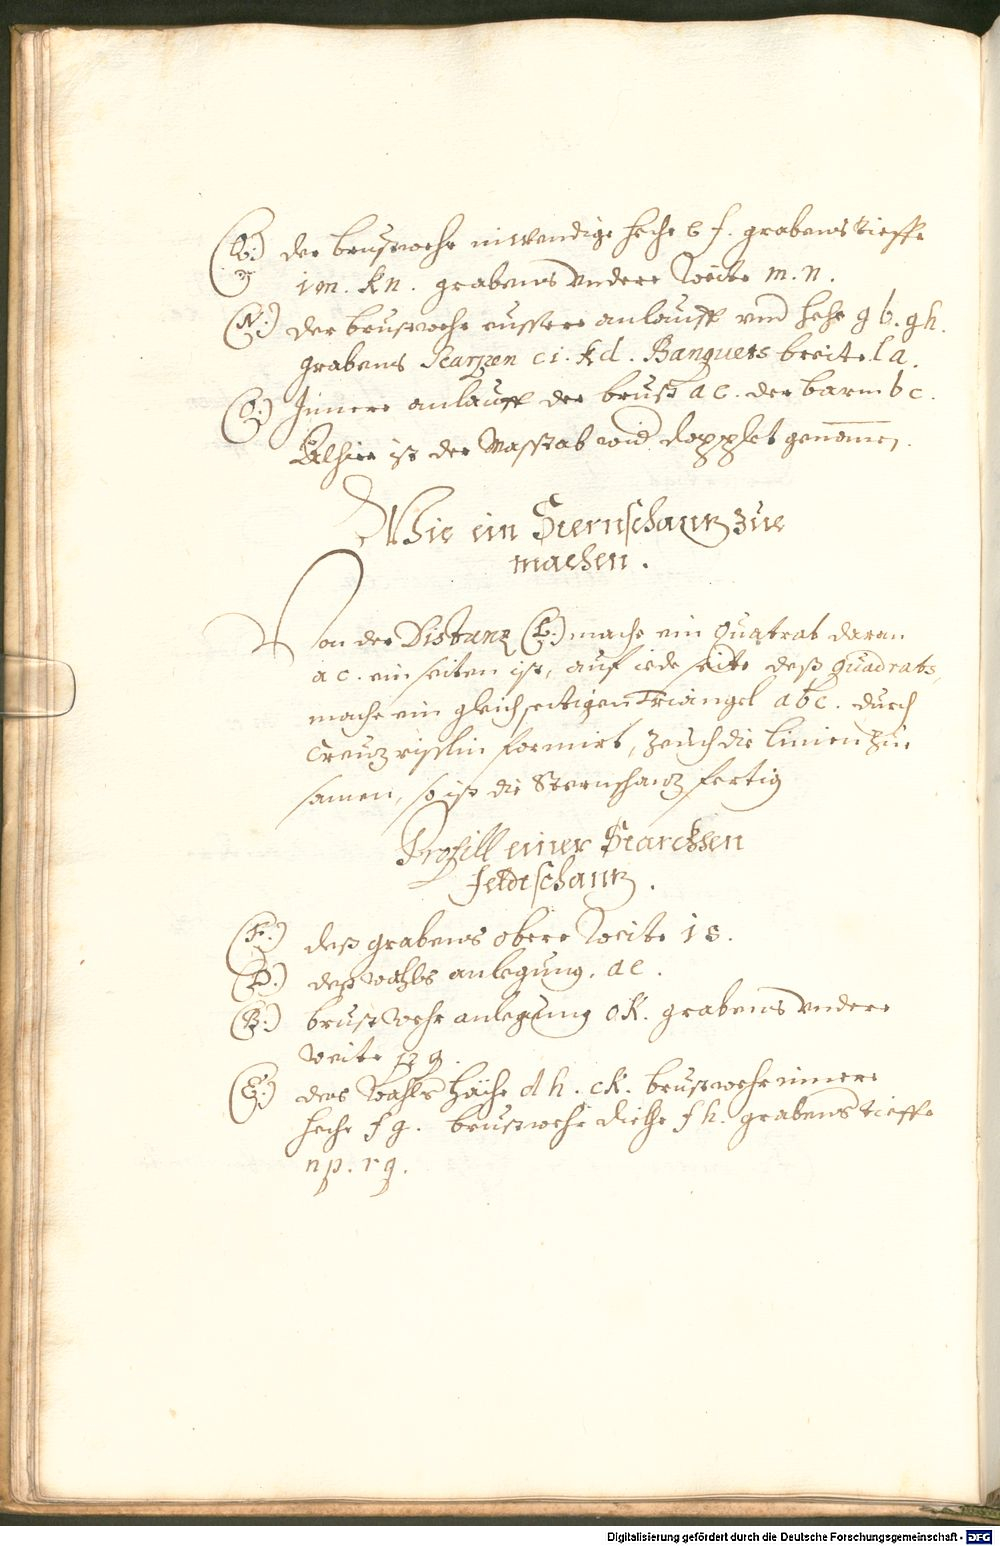 der brustwehr inwendige hehe e f. grabens tieffe
im. kn. grabens undere Weite m. n.
(N:) der brustwehr eussere anlauff und hehe g b. g h.
grabens Scarpen c i. k d. Banquets breite l a.
(O:) Innere anlauff der brust a c. der barm b c.
Alhier ist der Masstab wid. dopplet genomen.
Wie ein Sternschantz zue
machen.
Von der Distantz (L:) mache ein Quatrat daran
a c. ein seiten ist, auf iede seite deß Quadrats,
mache ein gleichseitigen Triangel a b c. durch
Creutzrisslin formirt, zeuch die Linien zu,
samen, so ist die Sternschantz fertig
Profill einer Starckhen
feldtschantz.
(F:) deß grabens obere Weite i s.
(D.) deß wahls anlegung. a e.
brustwehr anlegung o k. grabens undere
Weite p q.
des Wahls Höche d h. c k. brustwehr innere
hehe f g. brustwehr dickhe f h. grabens tieffe
n p. r q.
Digitalisierung gefördert durch die Deutsche Forschungsgemeinschaft - DFG